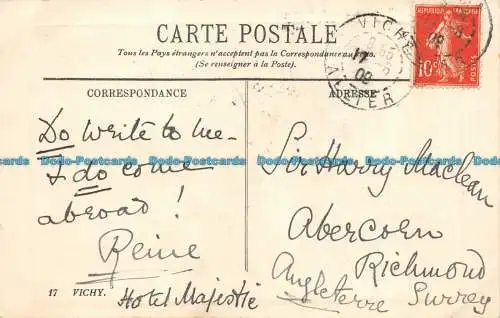 CARTE POSTALE
Tous les Pays étrangers n'acceptent pas la Correspondance au recto.
(Se renseigner à la Poste).
CORRESPONDANCE
ADRESSE
VICHY
17
09
ALLIER
10c
POSTES
Do write to me -
& do come
abroad!
Reine
Hotel Majestic
17 VICHY.
Sir Harry Maclean
Abercorn
Richmond
Angleterre Surrey
Dodo-Postcards Dodo-Postcards Dodo-Postcards Dodo-Postcards Dodo-Postcards